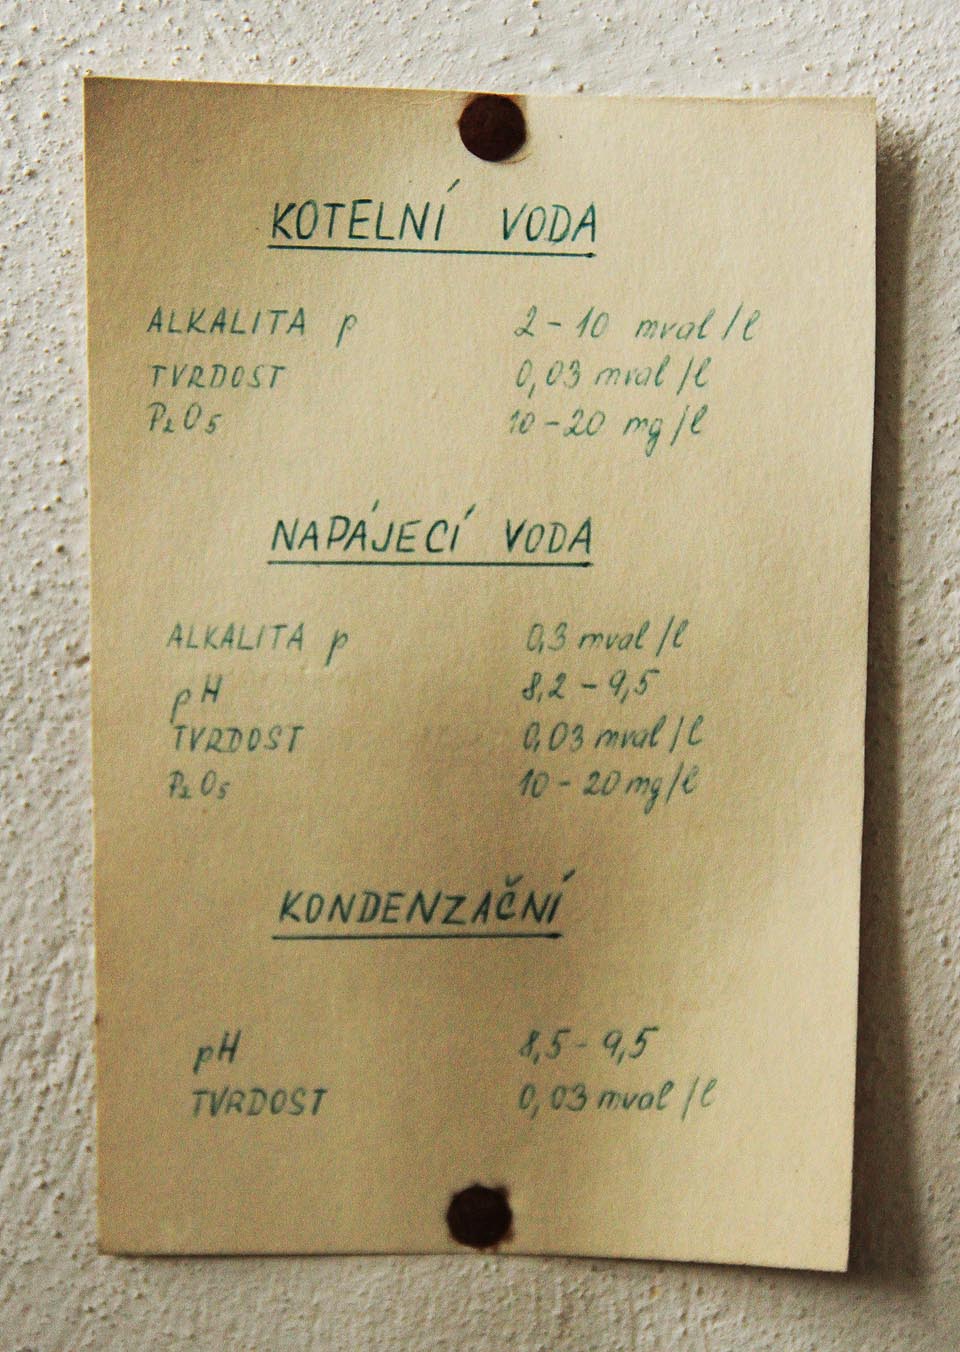 KOTELNÍ VODA
ALKALITA p 2-10 mval/l
TVRDOST 0,03 mval/l
P₂O₅ 10-20 mg/l
NAPÁJECÍ VODA
ALKALITA p 0,3 mval/l
pH 8,2-9,5
TVRDOST 0,03 mval/l
P₂O₅ 10-20 mg/l
KONDENZAČNÍ
pH 8,5-9,5
TVRDOST 0,03 mval/l